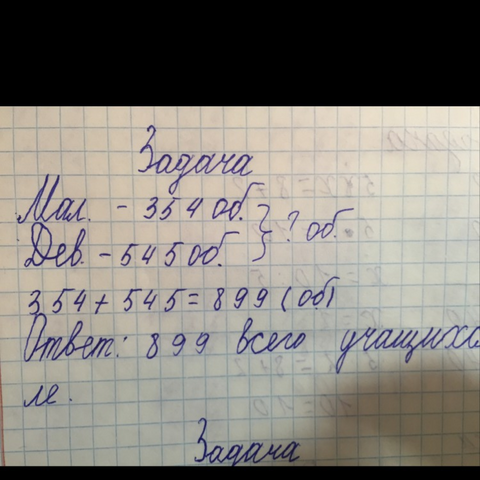 Задача
Мал. - 354 об. } ? об.
Дев. - 545 об.
354 + 545 = 899 (об)
Ответ: 899 всего учащихся
ле.
Задача